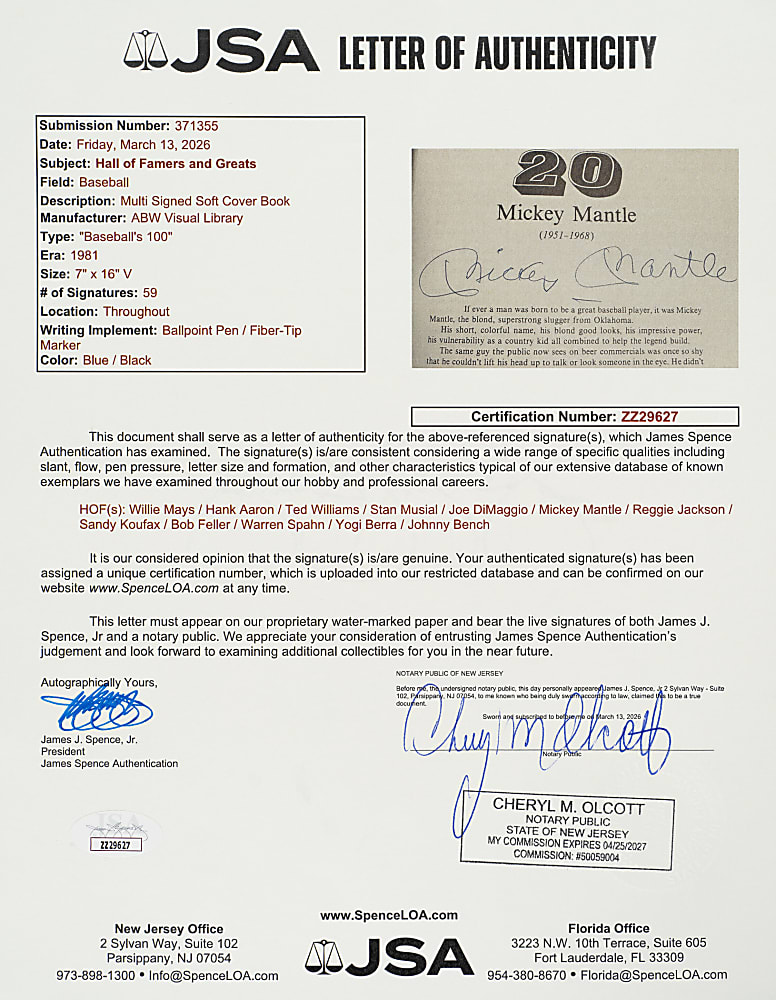 JSA LETTER OF AUTHENTICITY
Submission Number: 371355
Date: Friday, March 13, 2026
Subject: Hall of Famers and Greats
Field: Baseball
Description: Multi Signed Soft Cover Book
Manufacturer: ABW Visual Library
Type: "Baseball's 100"
Era: 1981
Size: 7" x 16" V
# of Signatures: 59
Location: Throughout
Writing Implement: Ballpoint Pen / Fiber-Tip
Marker
Color: Blue / Black
20
Mickey Mantle
(1951-1968)
Mickey Mantle
If ever a man was born to be a great baseball player, it was Mickey
Mantle, the blond, superstrong slugger from Oklahoma.
His short, colorful name, his blond good looks, his impressive power,
his vulnerability as a country kid all combined to help the legend build.
The same guy the public now sees on beer commercials was once so shy
that he couldn't lift his head up to talk or look someone in the eye. He didn't
Certification Number: ZZ29627
This document shall serve as a letter of authenticity for the above-referenced signature(s), which James Spence
Authentication has examined. The signature(s) is/are consistent considering a wide range of specific qualities including
slant, flow, pen pressure, letter size and formation, and other characteristics typical of our extensive database of known
exemplars we have examined throughout our hobby and professional careers.
HOF(s): Willie Mays / Hank Aaron / Ted Williams / Stan Musial / Joe DiMaggio / Mickey Mantle / Reggie Jackson /
Sandy Koufax / Bob Feller / Warren Spahn / Yogi Berra / Johnny Bench
It is our considered opinion that the signature(s) is/are genuine. Your authenticated signature(s) has been
assigned a unique certification number, which is uploaded into our restricted database and can be confirmed on our
website www.SpenceLOA.com at any time.
This letter must appear on our proprietary water-marked paper and bear the live signatures of both James J.
Spence, Jr and a notary public. We appreciate your consideration of entrusting James Spence Authentication's
judgement and look forward to examining additional collectibles for you in the near future.
Autographically Yours,
James J. Spence, Jr.
President
James Spence Authentication
NOTARY PUBLIC OF NEW JERSEY
Before me, the undersigned notary public, this day personally appeared James J. Spence, Jr 2 Sylvan Way - Suite
102, Parsippany, NJ 07054, to me known who being duly sworn according to law, claimed this to be a true
document.
Sworn and subscribed to before me on March 13, 2026
Cheryl M Olcott
Notary Public
CHERYL M. OLCOTT
NOTARY PUBLIC
STATE OF NEW JERSEY
MY COMMISSION EXPIRES 04/25/2027
COMMISSION: #50059004
JSA
ZZ29627
www.SpenceLOA.com
New Jersey Office
2 Sylvan Way, Suite 102
Parsippany, NJ 07054
973-898-1300 • Info@SpenceLOA.com
JSA
Florida Office
3223 N.W. 10th Terrace, Suite 605
Fort Lauderdale, FL 33309
954-380-8670 • Florida@SpenceLOA.com